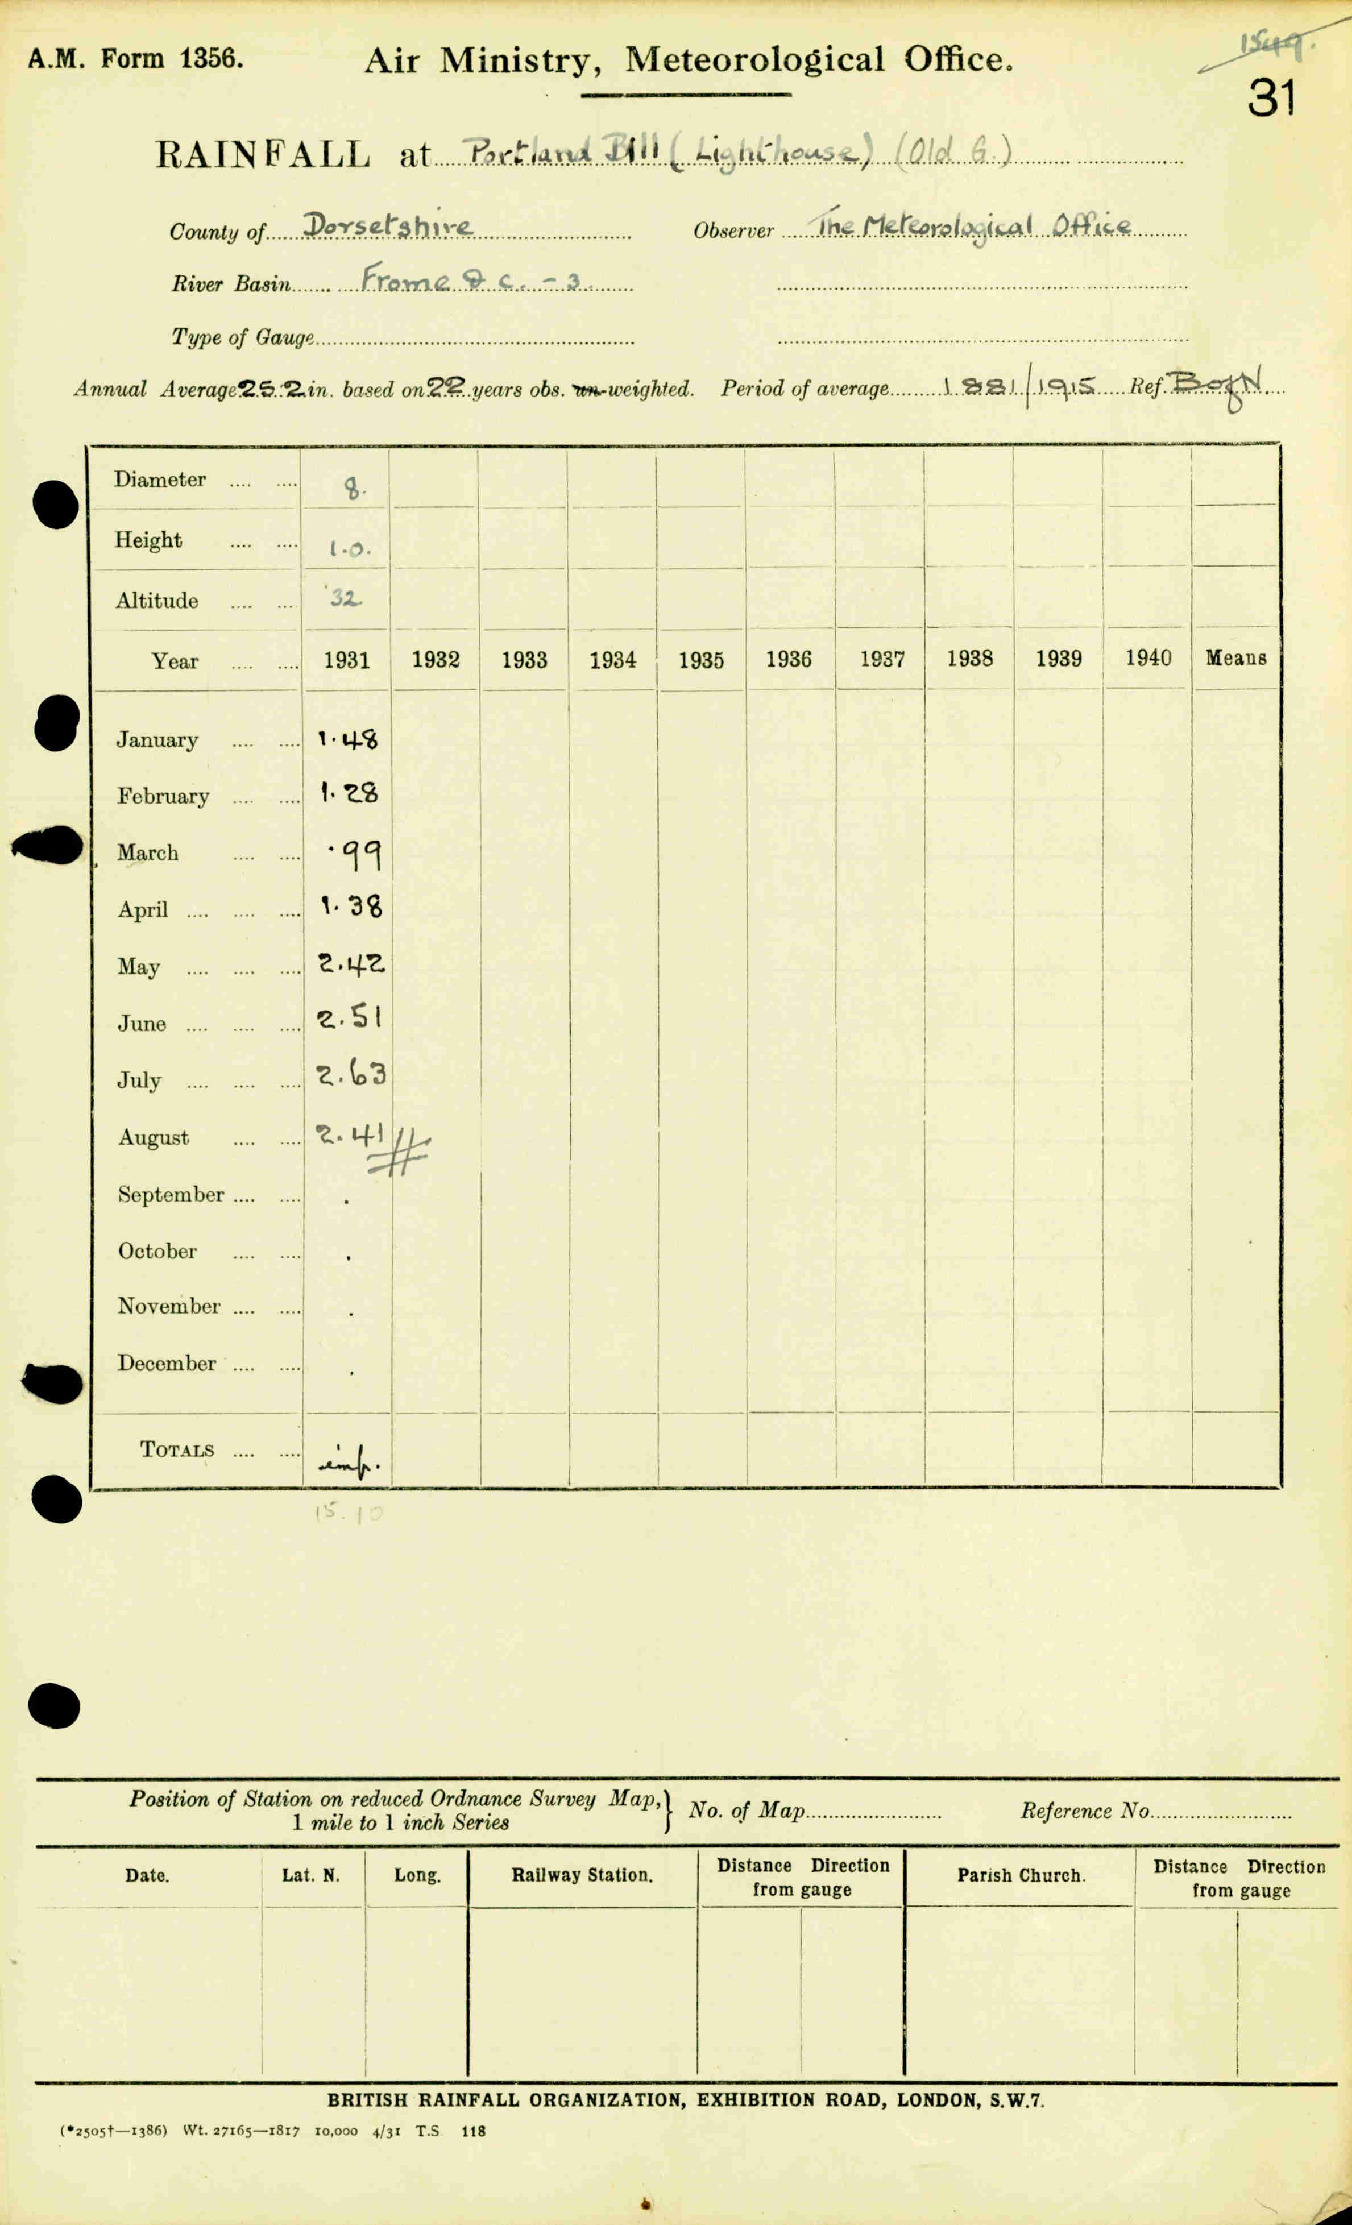 1549.
A.M. Form 1356. Air Ministry, Meteorological Office.
31
RAINFALL at Portland Bill (Lighthouse) (Old G.)
County of Dorsetshire Observer The Meteorological Office
River Basin Frome & c. - 3.
Type of Gauge
Annual Average 25.2 in. based on 22 years obs. un-weighted. Period of average 1881/1915 Ref. B of N
Diameter 8.
Height 1.0.
Altitude 32
Year 1931 1932 1933 1934 1935 1936 1937 1938 1939 1940 Means
January 1.48
February 1.28
March .99
April 1.38
May 2.42
June 2.51
July 2.63
August 2.41
September .
October .
November .
December .
TOTALS imp.
15.10
Position of Station on reduced Ordnance Survey Map,} No. of Map Reference No.
1 mile to 1 inch Series
Date. Lat. N. Long. Railway Station. Distance Direction Parish Church. Distance Direction
from gauge from gauge
BRITISH RAINFALL ORGANIZATION, EXHIBITION ROAD, LONDON, S.W.7.
(*2505†—1386) Wt. 27165—1817 10,000 4/31 T.S 118